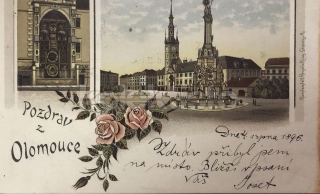 Pozdrav
z
Olomouce
Dne 4. srpna 1896.
Zdráv přibyl jsem
na místo. Blíže v psaní
Váš
Josef